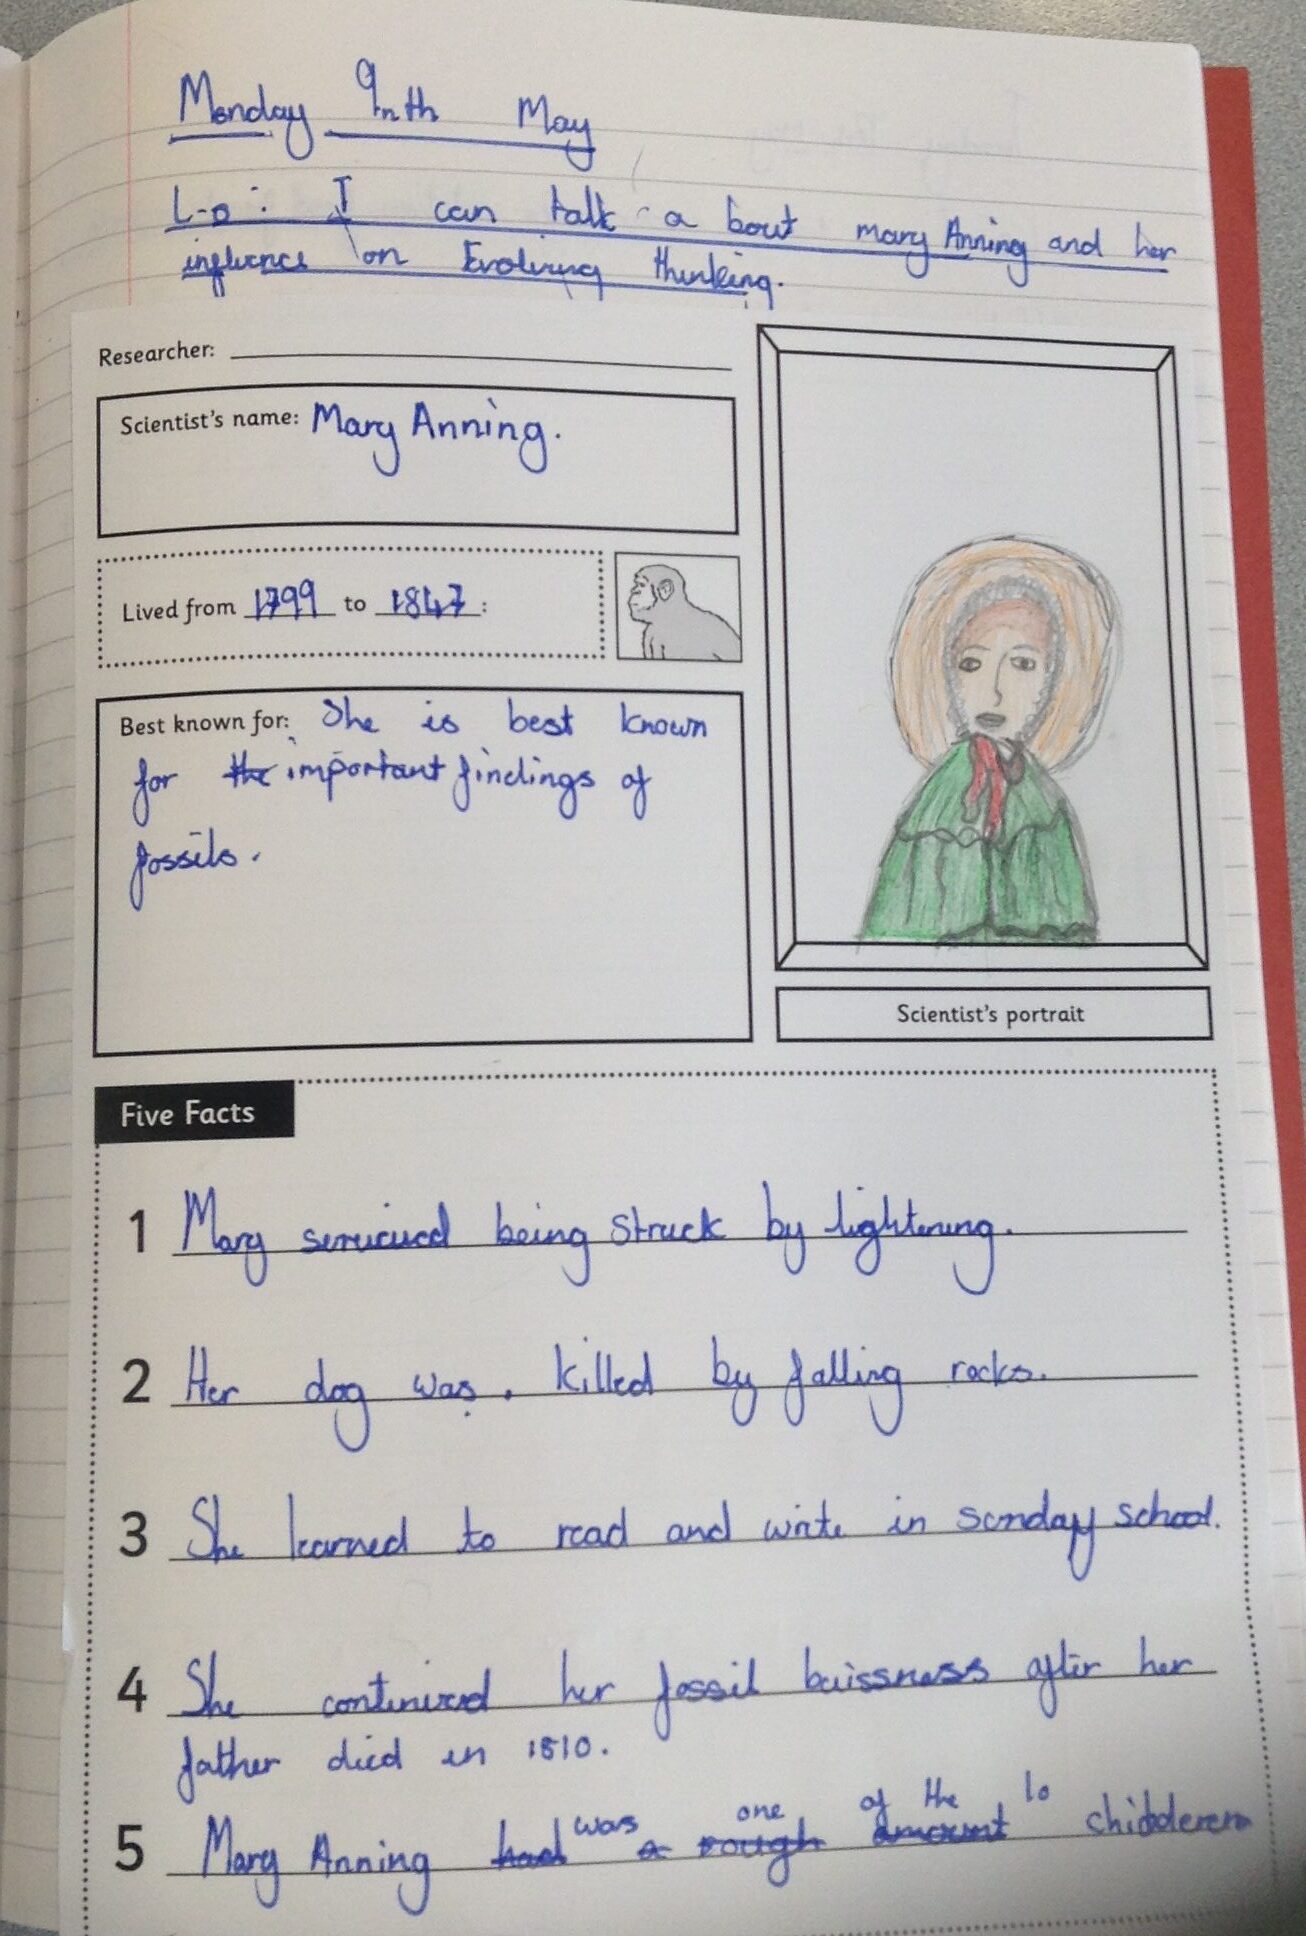 Monday 9nth May
L-o: I can talk a bout mary Anning and her
influence on Evolving thinking.
Researcher:
Scientist's name: Mary Anning.
Lived from 1799 to 1847:
Best known for: She is best known
for the important findings of
fossils.
Scientist's portrait
Five Facts
1 Mary servived being struck by lightening.
2 Her dog was. killed by falling rocks.
3 She learned to read and write in sunday school.
4 She continued her fossil buissness after her
father died in 1810.
5 Mary Anning had was a rough one amount of the 10